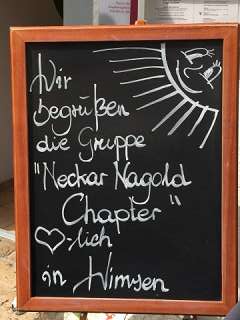 Wir
begrüßen
die Gruppe
"Neckar Nagold
Chapter"
♡-lich
in Wimsen